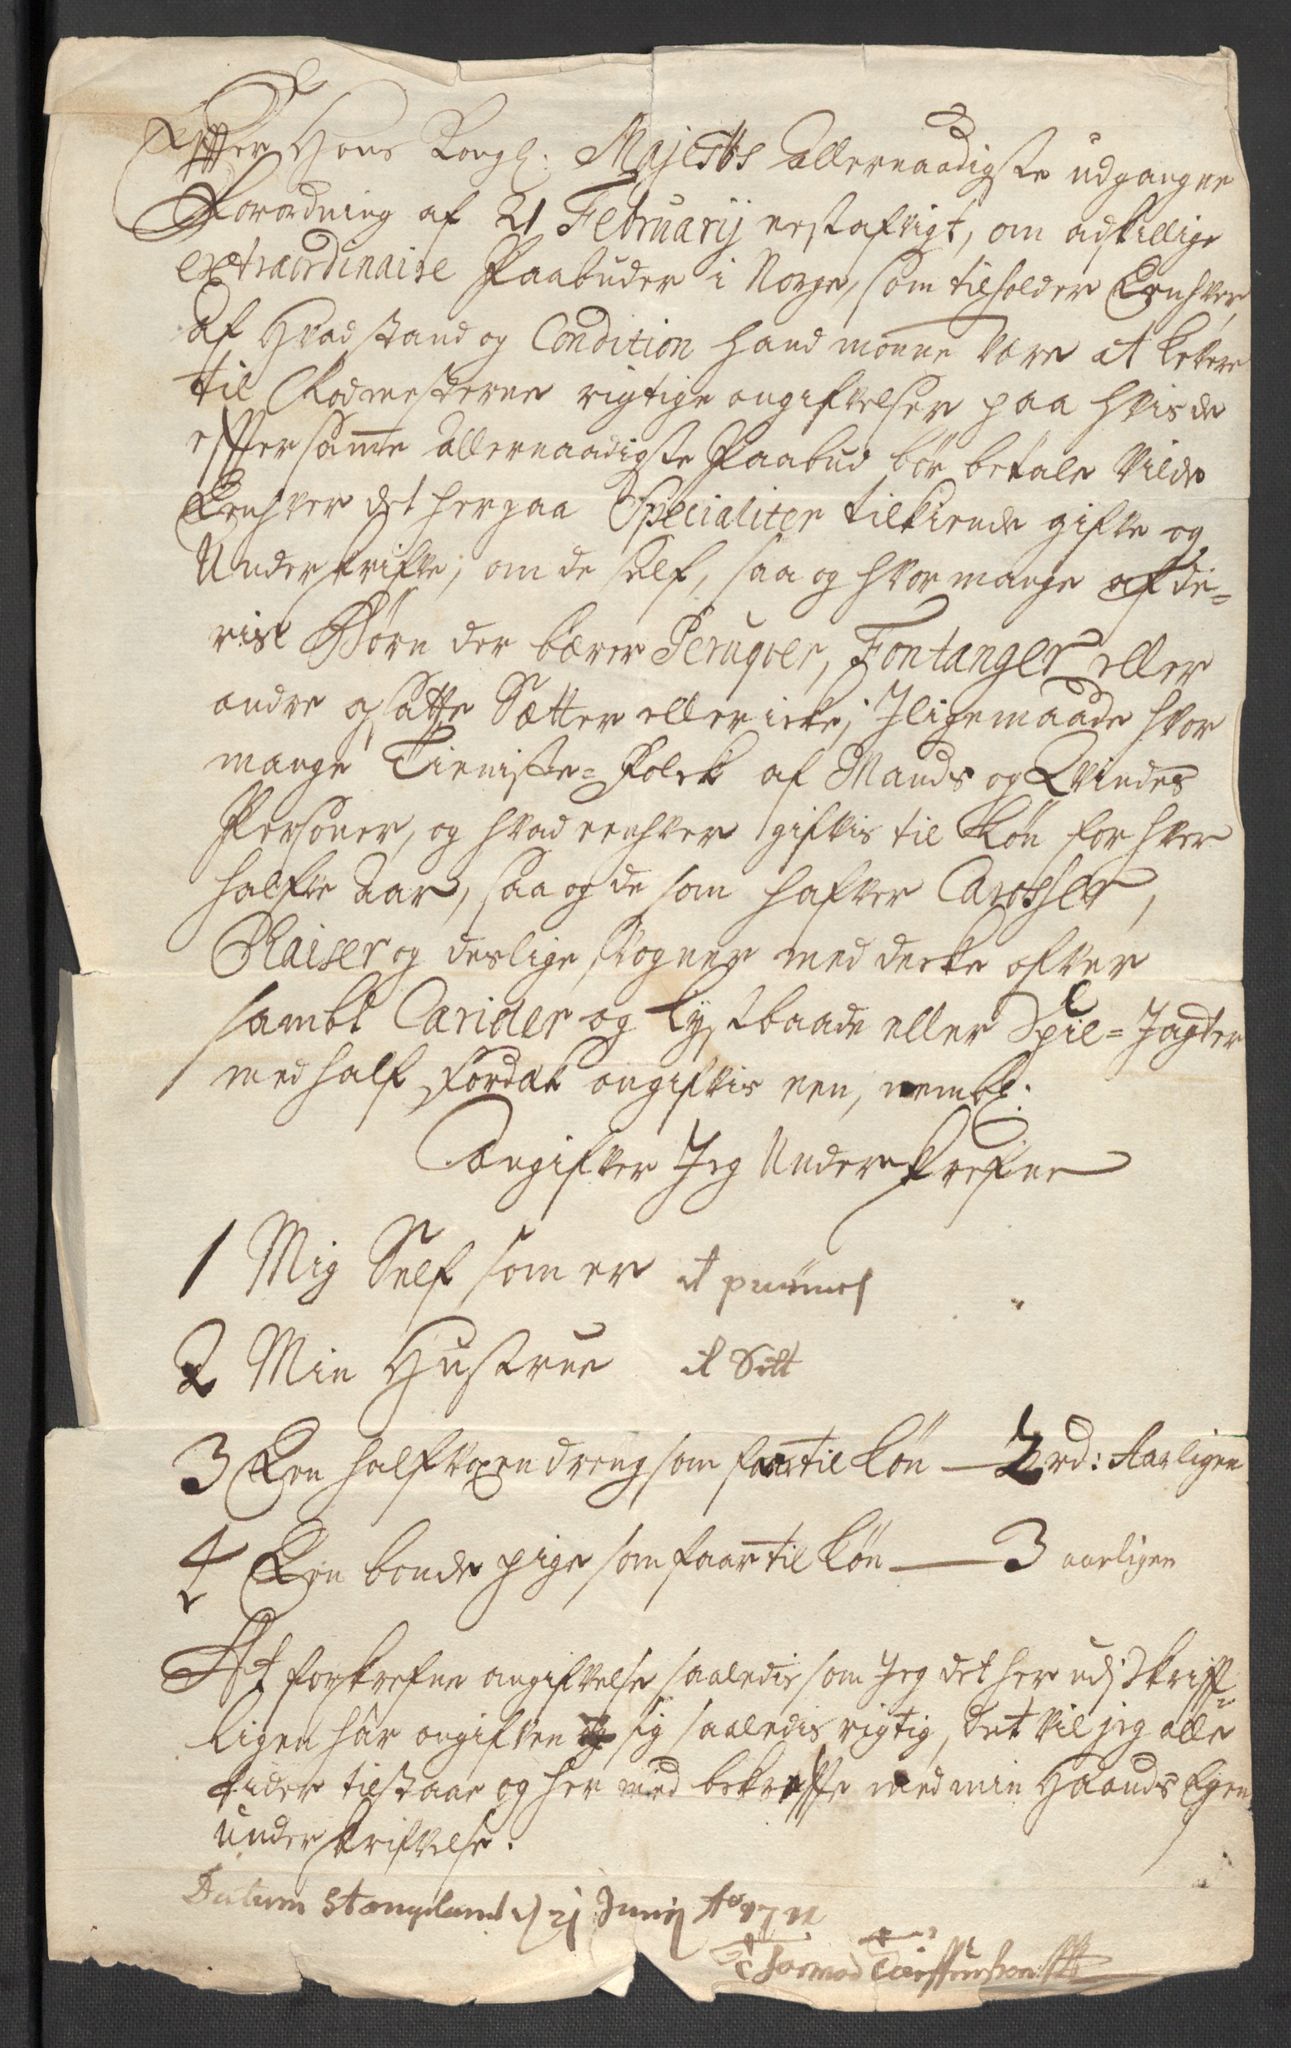 Effter Hans Kongl: Majestts Allernaadigste udgangne
Forordning af 21 Februarij nestafvigt, om adskillige
extraordinaire Paabuder i Norge, som tilholder Eenhver,
af Hvad stand og Condition hand monne være at levere
til Rodmesterne rigtige angifvelser paa hvis de
effter samme Allernaadigste Paabud bør betale Vilde
Eenhver det herpaa Specialiter tilkiende gifve og
Underskrifve, om de self, saa og hvor mange af de=
ris Børn der bærer Peruqver, Fontanger eller
andre opsatte Sætter eller icke; Iligemaade hvor
mange Tieniste=Folck af Mands og Qvindes
Personer, og hvad eenhver gifvis til Løn for hver
halfve Aar, saa og de som hafver Carosser,
Chaiser og deslige Vogner med decke ofver
sambt Carioler og Lystbaade eller Spil=Jagter
med half Fordek angifvis een, nembl:
Angifver Jeg Underskrefne
1 Mig Self som er it
2 Min Hustrue it Sett
3 Een halfvoxen dreng som faar til Løn — 2 rd: Aarligen
4 Een bonde pige som faar til Løn — 3 aarligen
At forskrefne angifvelse saaledis som Jeg det her udj Skrifft=
ligen har angifven sig saaledis rigtig, det vil jeg alle
tider tilstaae og her med bekreffte med min Haands Egen
underskrifvelse.
Datum Stangeland d 21 Junij Ao 1711
Tormod